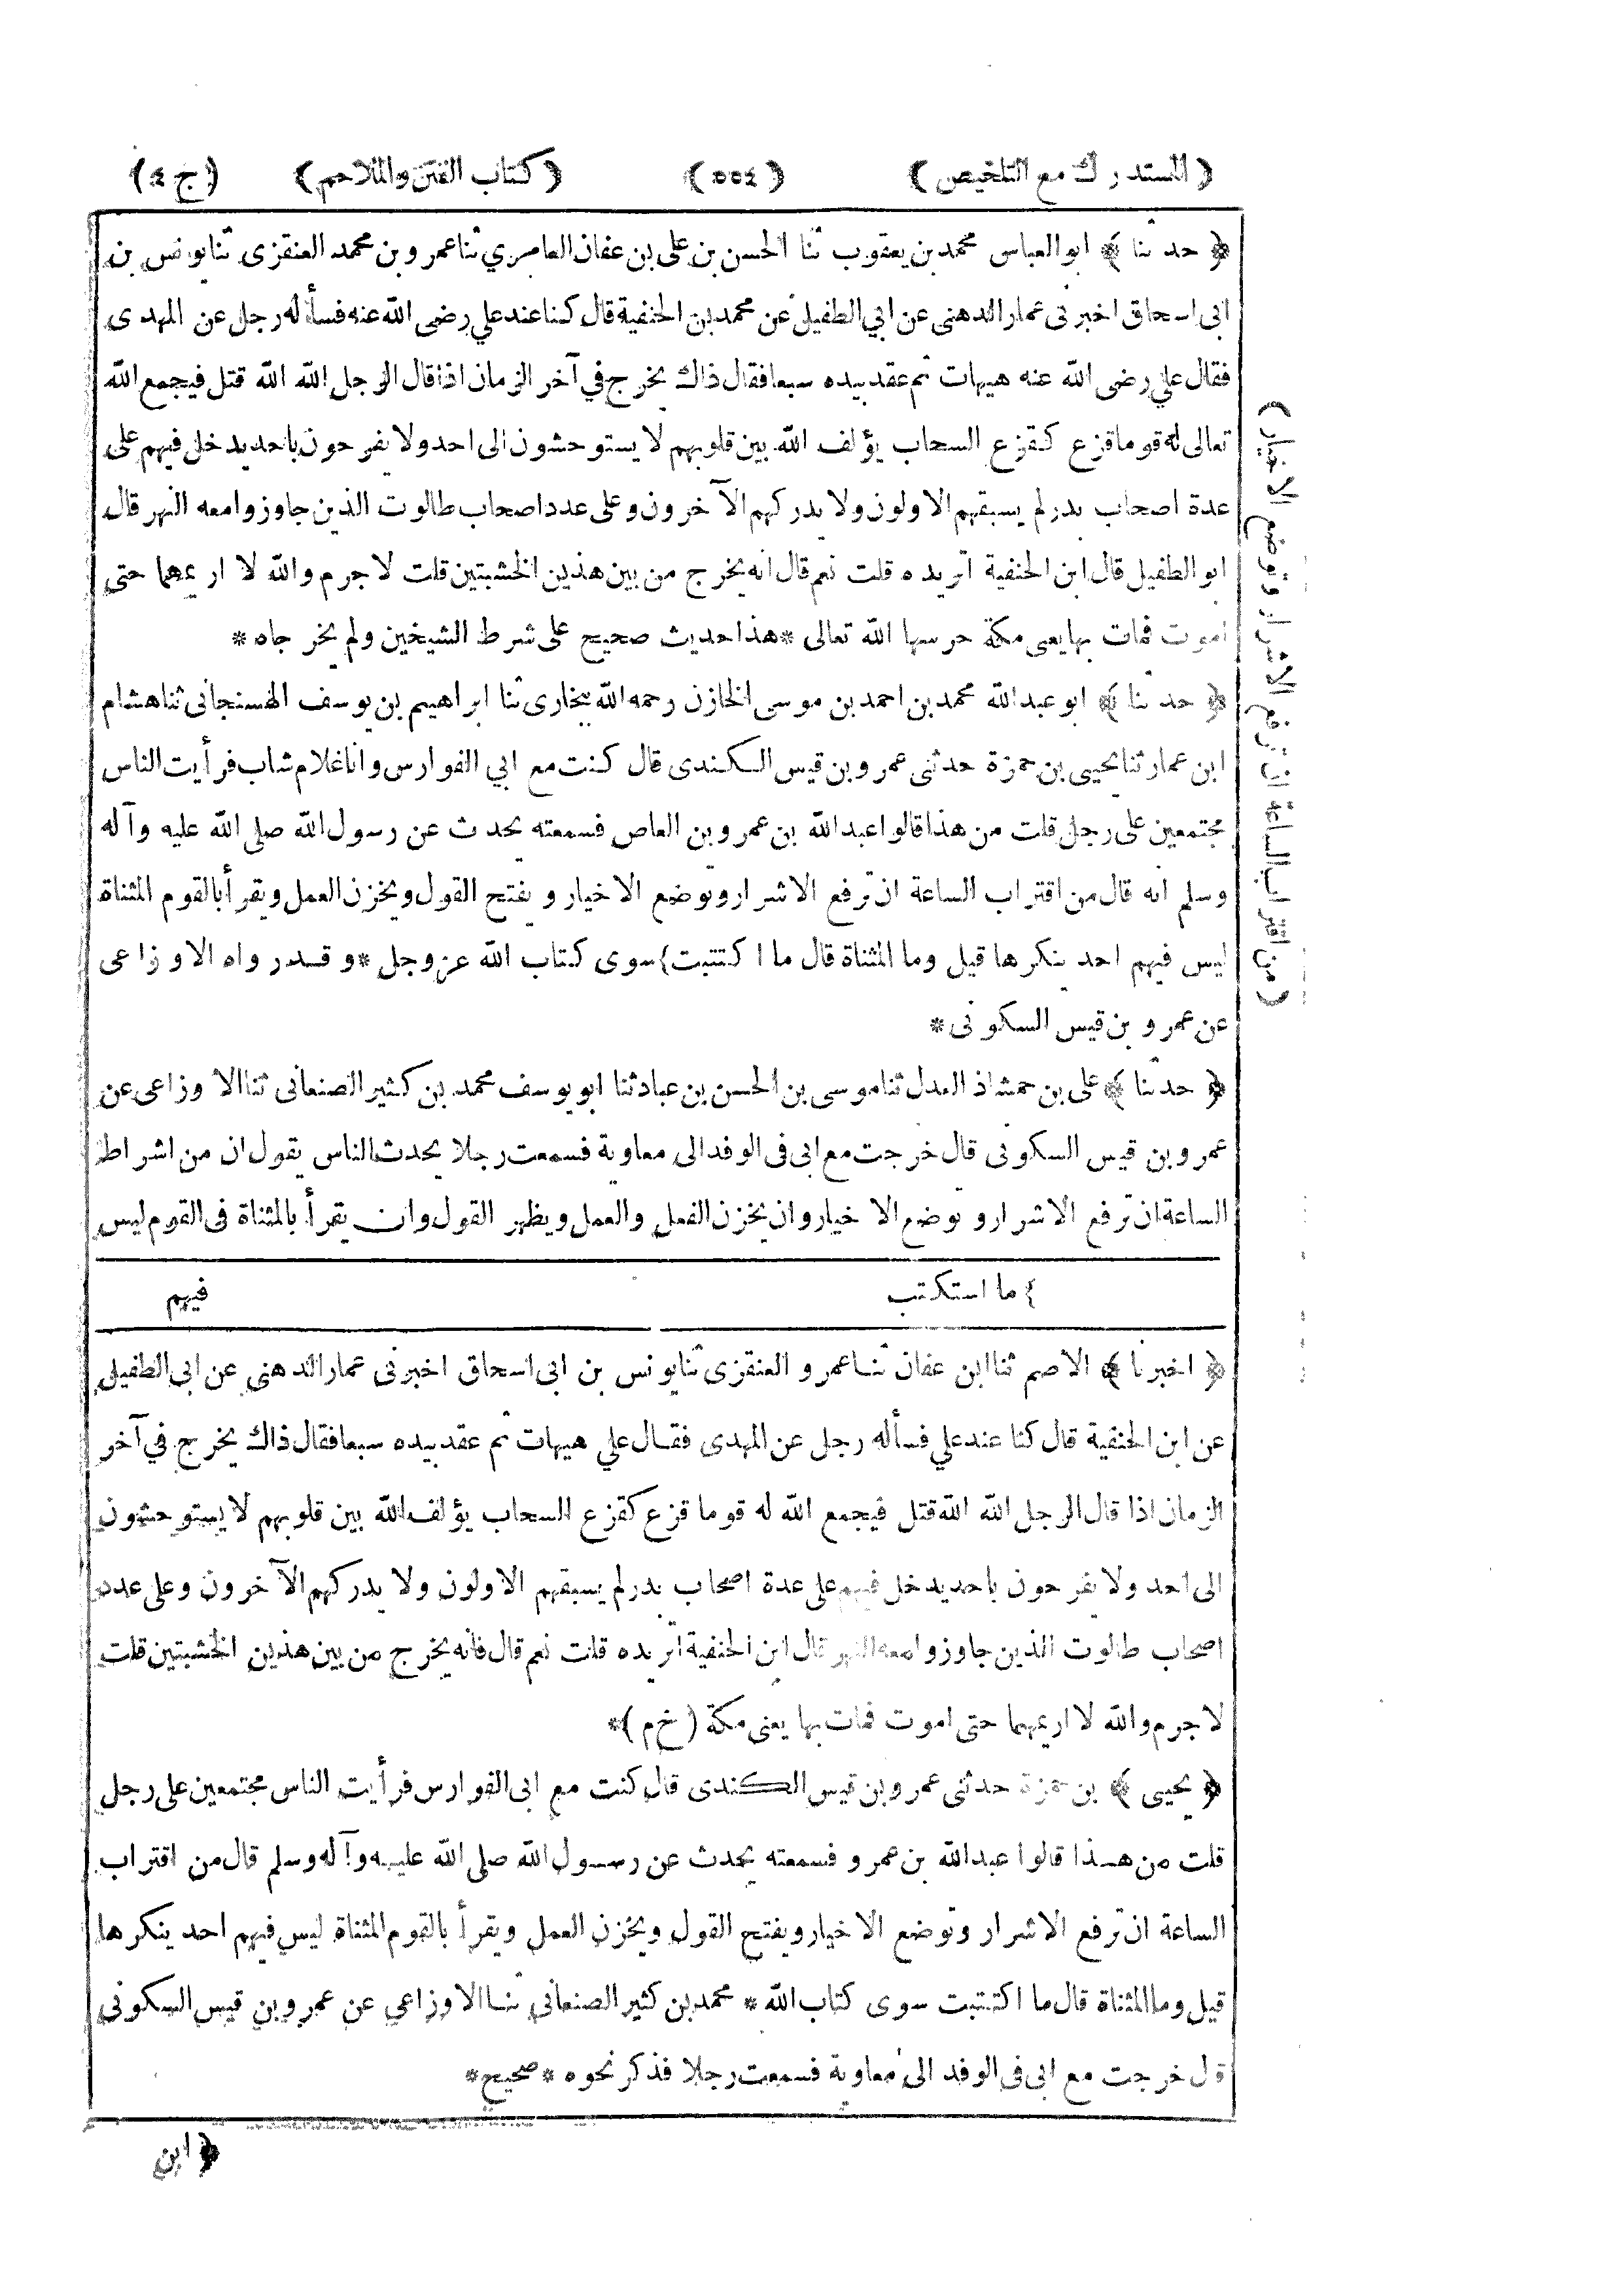 (المستدرك مع التلخيص) (٥٥٤) (كتاب الفتن والملاحم) (ج ٤)
﴿ حدثنا ﴾ ابو العباس محمد بن يعقوب ثنا الحسن بن على بن عفان العامري ثنا عمرو بن محمد العنقزى ثنا يونس بن
ابى اسحاق اخبرنى عمار الدهنى عن ابي الطفيل عن محمد بن الحنفية قال كنا عند علي رضى الله عنه فسأله رجل عن المهدى
فقال علي رضى الله عنه هيهات ثم عقد بيده سبعا فقال ذاك يخرج في آخر الزمان اذا قال الرجل الله الله قتل فيجمع الله
تعالى له قوما قزع كقزع السحاب يؤلف الله بين قلوبهم لا يستوحشون الى احد ولا يفرحون باحد يدخل فيهم على
عدة اصحاب بدر لم يسبقهم الاولون ولا يدركهم الآخرون وعلى عدد اصحاب طالوت الذين جاوزوا معه النهر قال
ابو الطفيل قال ابن الحنفية اتريده قلت نعم قال انه يخرج من بين هذين الخشبتين قلت لا جرم والله لا اريمهما حتى
اموت فمات بها يعنى مكة حرسها الله تعالى *هذا حديث صحيح على شرط الشيخين ولم يخرجاه*
﴿ حدثنا ﴾ ابو عبد الله محمد بن احمد بن موسى الخازن رحمه الله ببخارى ثنا ابراهيم بن يوسف الهسنجانى ثنا هشام
ابن عمار ثنا يحيى بن حمزة حدثنى عمرو بن قيس الكندى قال كنت مع ابي الفوارس وانا غلام شاب فرأيت الناس
مجتمعين على رجل قلت من هذا قالوا عبد الله بن عمرو بن العاص فسمعته يحدث عن رسول الله صلى الله عليه وآله
وسلم انه قال من اقتراب الساعة ان ترفع الاشرار وتوضع الاخيار و يفتح القول ويخزن العمل ويقرأ بالقوم المثناة
ليس فيهم احد ينكرها قيل وما المثناة قال ما اكتتبت} سوى كتاب الله عز وجل *وقد رواه الاوزاعى
عن عمرو بن قيس السكونى*
﴿ حدثنا ﴾ على بن حمشاذ العدل ثنا موسى بن الحسن بن عباد ثنا ابو يوسف محمد بن كثير الصنعانى ثنا الاوزاعى عن
عمرو بن قيس السكونى قال خرجت مع ابى فى الوفد الى معاوية فسمعت رجلا يحدث الناس يقول ان من اشراط
الساعة ان ترفع الاشرار و توضع الاخيار وان يخزن الفعل والعمل ويظهر القول وان يقرأ بالمثناة فى القوم ليس
} ما استكتب
فيهم
﴿ اخبرنا ﴾ الاصم ثنا ابن عفان ثنا عمرو العنقزى ثنا يونس بن ابى اسحاق اخبرنى عمار الدهنى عن ابى الطفيل
عن ابن الحنفية قال كنا عند علي فسأله رجل عن المهدى فقال علي هيهات ثم عقد بيده سبعا فقال ذاك يخرج في آخر
الزمان اذا قال الرجل الله الله قتل فيجمع الله له قوما قزع كقزع السحاب يؤلف الله بين قلوبهم لا يستوحشون
الى احد ولا يفرحون باحد يدخل فيهم على عدة اصحاب بدر لم يسبقهم الاولون ولا يدركهم الآخرون وعلى عدد
اصحاب طالوت الذين جاوزوا معه النهر قال ابن الحنفية اتريده قلت نعم قال فانه يخرج من بين هذين الخشبتين قلت
لا جرم والله لا اريمهما حتى اموت فمات بها يعنى مكة (خ م)*
﴿ يحيى ﴾ بن حمزة حدثنى عمرو بن قيس الكندى قال كنت مع ابى الفوارس فرأيت الناس مجتمعين على رجل
قلت من هذا قالوا عبد الله بن عمرو فسمعته يحدث عن رسول الله صلى الله عليه وآله وسلم قال من اقتراب
الساعة ان ترفع الاشرار وتوضع الاخيار ويفتح القول ويخزن العمل ويقرأ بالقوم المثناة ليس فيهم احد ينكرها
قيل وما المثناة قال ما اكتتبت سوى كتاب الله * محمد بن كثير الصنعانى ثنا الاوزاعي عن عمرو بن قيس السكونى
قال خرجت مع ابى فى الوفد الى معاوية فسمعت رجلا فذكر نحوه *صحيح*
﴿ ابن
(من اقتراب الساعة ان ترفع الاشرار وتوضع الاخيار)